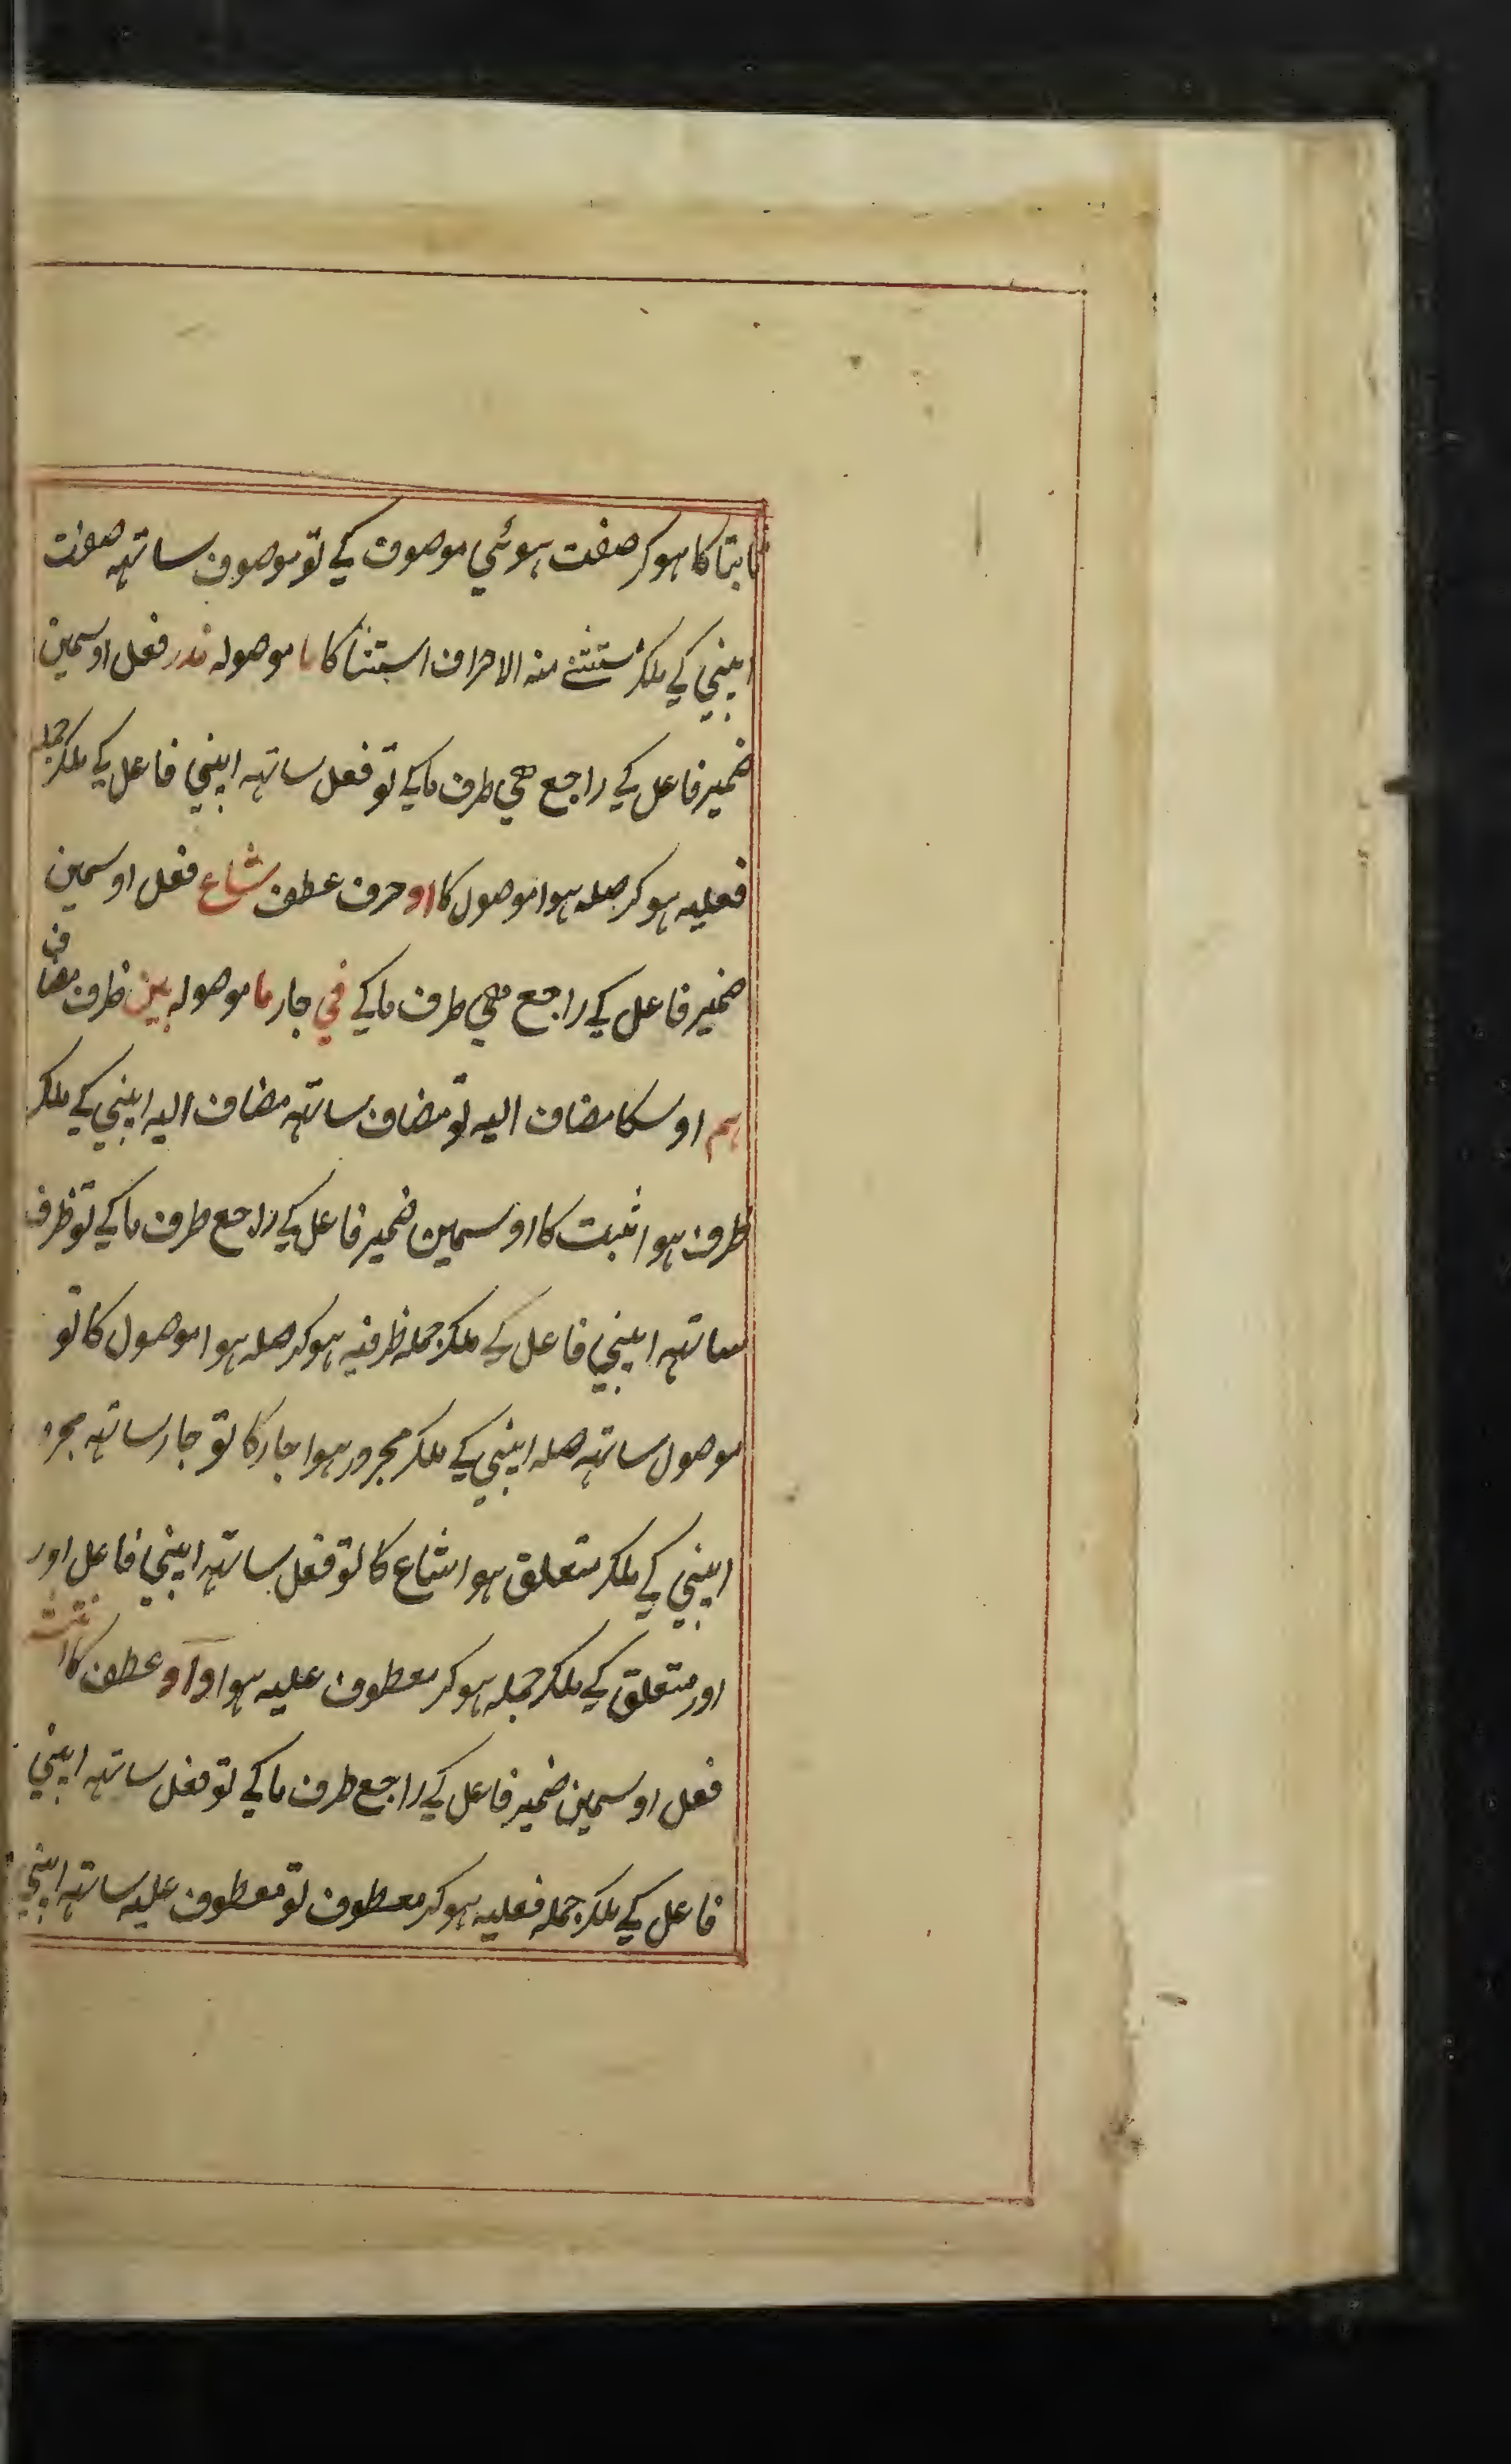 ثابتا کا ہوکر صفت ہوئی موصوف کے تو موصوف ساتہہ صفت
اپنی کے ملکر مستثنے منہ الا حرف استثنا کا ما موصولہ ندر فعل اوسمین
ضمیر فاعل کے راجع ہی طرف ما کے تو فعل ساتہہ اپنی فاعل کے ملکر جملہ
فعلیہ ہوکر صلہ ہوا موصول کا او حرف عطف شاع فعل اوسمین
ضمیر فاعل کے راجع ہی طرف ما کے في جار ما موصولہ بین ظرف مضاف
ہم اوسکا مضاف الیہ تو مضاف ساتہہ مضاف الیہ اپنی کے ملکر
ظرف ہوا ثبت کا اوسمین ضمیر فاعل کے راجع طرف ما کے تو ظرف
ساتہہ اپنی فاعل کے ملکر جملہ ظرفیہ ہوکر صلہ ہوا موصول کا تو
موصول ساتہہ صلہ اپنی کے ملکر مجرور ہوا جار کا تو جار ساتہہ مجرو
اپنی کے ملکر متعلق ہوا شاع کا تو فعل ساتہہ اپنی فاعل اور
اور متعلق کے ملکر جملہ ہوکر معطوف علیہ ہوا واو عطف کا
فعل اوسمین ضمیر فاعل کے راجع طرف ما کے تو فعل ساتہہ اپنی
فاعل کے ملکر جملہ فعلیہ ہوکر معطوف تو معطوف علیہ ساتہہ اپنی